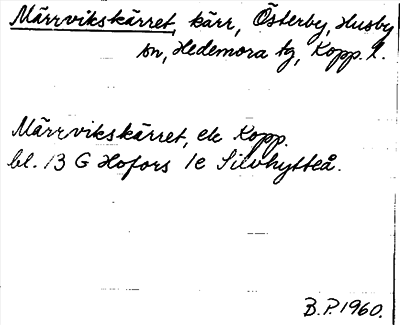 Märrvikskärret, kärr, Österby, Husby
sn, Hedemora tg, Kopp. l.
Märrvikskärret, ek Kopp.
bl. 13 G Hofors 1e Silvhytteå.
B.P. 1960.